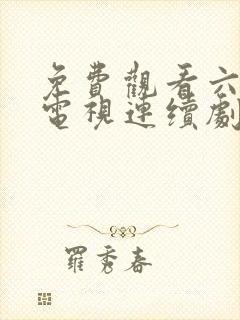 免費觀看六
電視連續劇
羅秀春